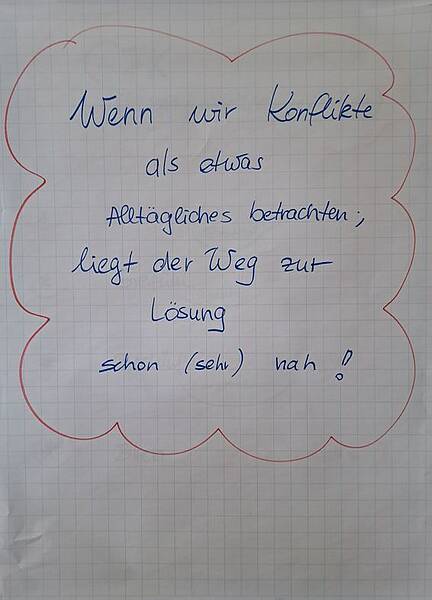 Wenn wir Konflikte
als etwas
Alltägliches betrachten,
liegt der Weg zur
Lösung
schon (sehr) nah!